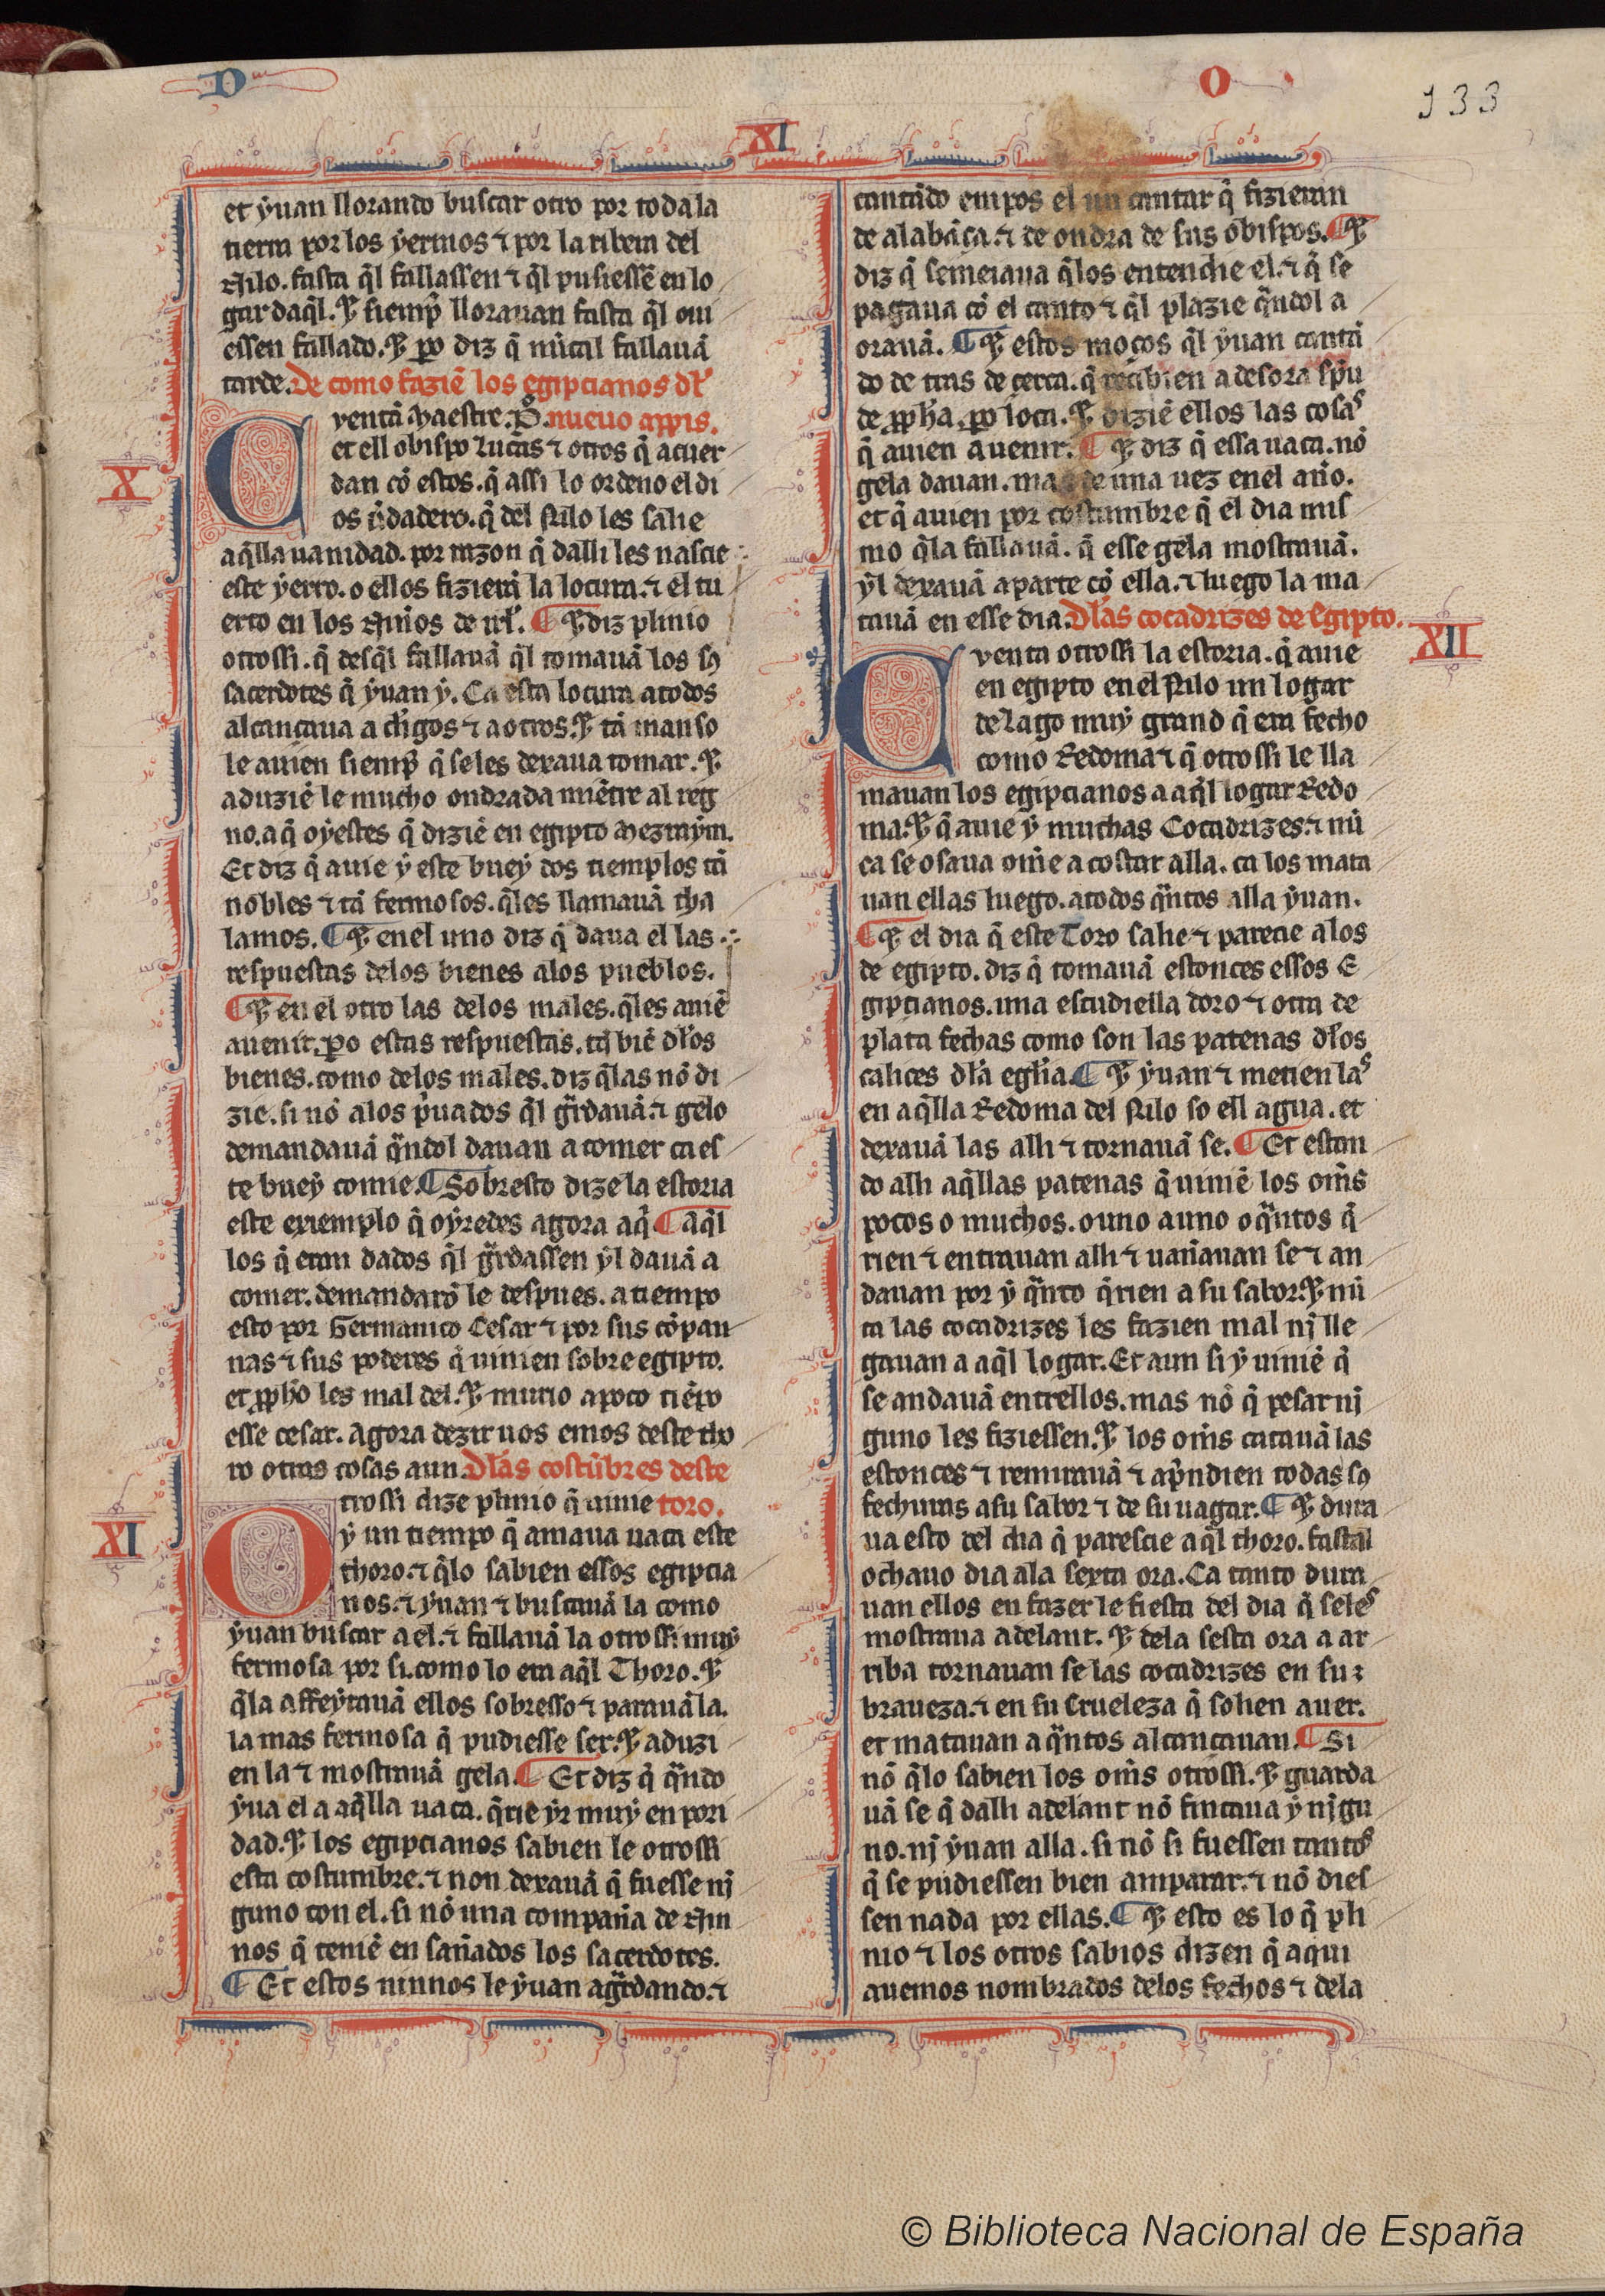 D
O
133
XI
et ẏuan llorando buscar otro por toda la
tierra por los ẏermos ⁊ por la ribera del
Nilo. fasta q̃l fallassen ⁊ q̃l pusiessẽ en lo
gar daq̃l. ⁊ siemp̃ llorauan fasta q̃l oui
essen fallado. ⁊ po diz q̃ nũcal fallauã
tarde. De como faziẽ los egipcianos dl̃
nueuo appis.
X
Cuenta Maestre. P̃.
et ell obispo lucas ⁊ otros q̃ acuer
dan cõ estos. q̃ assi lo ordeno el di
os ũdadero. q̃ del Nilo les salie
aq̃lla uanidad. por razon q̃ dalli les nascie
este ẏerro. o ellos fizierã la locura. ⁊ el tu
erto en los Nin̄os de isrl̃. ¶ ⁊ diz plinio
otrossi. q̃ desq̃l fallauã q̃l tomauã los sꝰ
sacerdotes q̃ ẏuan ẏ. Ca esta locura a todos
alcançaua a cl̃igos ⁊ a otros. ⁊ tã manso
le auien siemp̃ q̃ se les dexaua tomar. ⁊
aduziẽ le mucho ondrada miẽtre al reg
no. a q̃ oẏestes q̃ diziẽ en egipto Mezraẏm.
Et diz q̃ auie ẏ este bueẏ dos tiemplos tã
nobles ⁊ tã fermosos. q̃les llamauã tha
lamos. ¶ ⁊ en el uno diz q̃ daua el las
respuestas delos bienes alos pueblos.
¶ ⁊ en el otro las delos males. q̃les auiẽ
auenir. po estas respuestas. tã biẽ dl̃os
bienes. como delos males. diz q̃las nõ di
zie. si nõ alos p̃uados q̃l gr̃dauã. ⁊ gelo
demandauã q̃ndol dauan a comer ca es
te bueẏ comie. ¶ Sobresto dize la estoria
este exiemplo q̃ oẏredes agora aq̃. ¶ Aq̃l
los q̃ eran dados q̃l gr̃dassen ẏl dauã a
comer. demandarõ le despues. a tiempo
esto por Germanico Cesar ⁊ por sus cõpan
nas ⁊ sus poderes q̃ uinien sobre egipto.
et ꝓph̃o les mal del. ⁊ murio apoco tiẽpo
esse cesar. Agora dezir uos emos deste tho
ro otras cosas aun. Dl̃as costũbres deste
toro.
XI
Otrossi dize plinio q̃ auie
ẏ un tiempo q̃ amaua uaca este
thoro. ⁊ q̃lo sabien essos egipcia
nos. ⁊ ẏuan ⁊ buscauã la como
ẏuan buscar a el. ⁊ fallauã la otrossi muẏ
fermosa por si. como lo era aq̃l Thoro. ⁊
q̃la affeẏtauã ellos sobresso ⁊ parauã la.
la mas fermosa q̃ pudiesse ser. ⁊ aduzi
en la ⁊ mostrauã gela. ¶ Et diz q̃ q̃ndo
ẏua el a aq̃lla uaca. q̃rie ẏr muẏ en pori
dad. ⁊ los egipcianos sabien le otrossi
esta costumbre. ⁊ non dexauã q̃ fuesse nĩ
guno con el. si nõ una compan̄a de Nin
nos q̃ teniẽ ensen̄ados los sacerdotes.
¶ Et estos ninnos le ẏuan agr̃dando. ⁊
cantãdo empos el un cantar q̃ fizieran
de alabãça. ⁊ de ondra de sus obispos. ¶ ⁊
diz q̃ semeiaua q̃los entendie el. ⁊ q̃ se
pagaua cõ el canto ⁊ q̃l plazie q̃ndol a
orauã. ¶ ⁊ estos moços q̃l ẏuan cantã
do de tras de cerca. q̃ recibien a desora sp̃u
de ꝓph̃a, po loca. ⁊ diziẽ ellos las cosas
q̃ auien auenir. ¶ ⁊ diz q̃ essa uaca. nõ
gela dauan. mas de una uez en el an̄o.
et q̃ auien por costumbre q̃ el dia mis
mo q̃la fallauã. q̃ esse gela mostrauã.
ẏl dexauã aparte cõ ella. ⁊ luego la ma
tauã en esse dia. Dl̃as cocadrizes de Egipto.
XII
Cuenta otrossi la estoria. q̃ auie
en egipto en el Nilo un logar
de lago muẏ grand q̃ era fecho
como Redoma ⁊ q̃ otrossi le lla
mauan los egipcianos a aq̃l logar Redo
ma. ⁊ q̃ auie ẏ muchas Cocadrizes. ⁊ nũ
ca se osaua om̃e acostar alla. ca los mata
uan ellas luego. a todos q̃ntos alla ẏuan.
¶ ⁊ el dia q̃ este Toro salie ⁊ parecie alos
de egipto. diz q̃ tomauã estonces essos E
gipcianos. una escudiella doro ⁊ otra de
plata fechas como son las patenas dl̃os
calices dl̃a egl̃ia. ¶ ⁊ ẏuan ⁊ metien las
en aq̃lla Redoma del Nilo so ell agua. et
dexauã las alli ⁊ tornauã se. ¶ Et estan
do alli aq̃llas patenas q̃ uiniẽ los om̃s
pocos o muchos. o uno a uno o q̃ntos q̃
rien ⁊ entrauan alli ⁊ uan̄auan se ⁊ an
dauan por ẏ q̃nto q̃rien a su sabor. ⁊ nũ
ca las cocadrizes les fazien mal nĩ lle
gauan a aq̃l logar. Et aun si ẏ uiniẽ q̃
se andauã entrellos. mas nõ q̃ pesar nĩ
guno les fiziessen. ⁊ los om̃s catauã las
estonces ⁊ remirauã ⁊ ap̃ndien todas sꝰ
fechuras a su sabor ⁊ de su uagar. ¶ ⁊ dura
ua esto del dia q̃ parescie aq̃l thoro. fastal
ochauo dia ala sexta ora. Ca tanto dura
uan ellos en fazer le fiesta del dia q̃ seles
mostraua adelant. ⁊ dela sesta ora a ar
riba tornauan se las cocadrizes en su
braueza. ⁊ en su Crueleza q̃ solien auer.
et matauan a q̃ntos alcançauan. ¶ Si
nõ q̃lo sabien los om̃s otrossi. ⁊ guarda
uã se q̃ dalli adelant nõ fincaua ẏ nĩgu
no. nĩ ẏuan alla. si nõ si fuessen tantos
q̃ se pudiessen bien amparar. ⁊ nõ dies
sen nada por ellas. ¶ ⁊ esto es lo q̃ pli
nio ⁊ los otros sabios dizen q̃ aqui
auemos nombrados delos fechos ⁊ dela
© Biblioteca Nacional de España